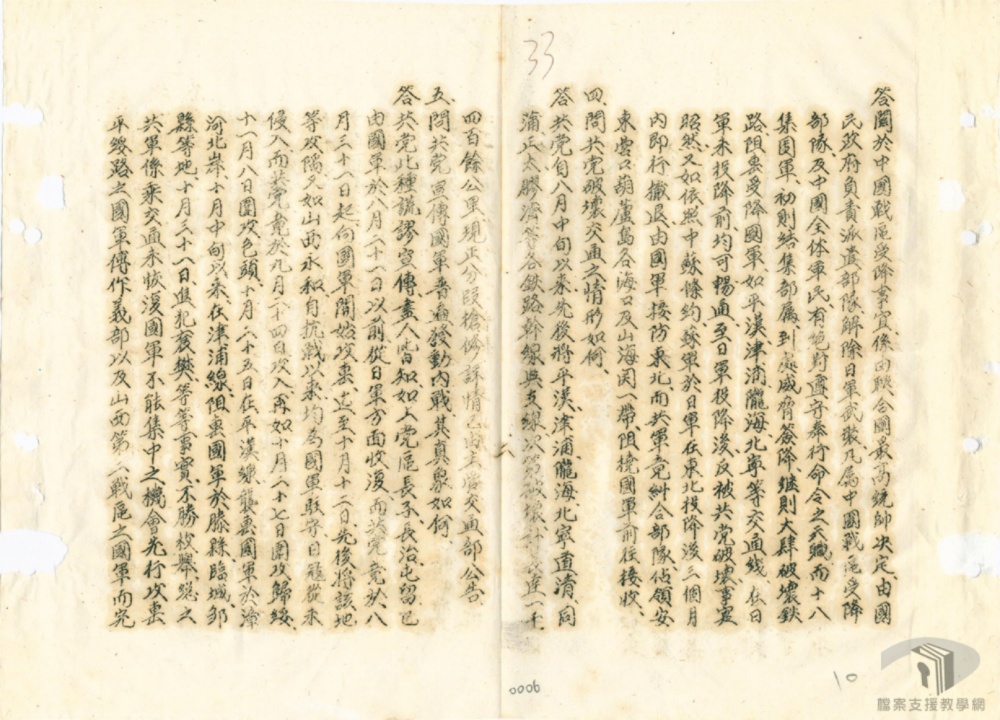 33
答關於中國戰區受降事宜、係由聯合國最高統帥決定、由國
民政府負責派遣部隊解除日軍武裝、凡屬中國戰區受降
部隊、及中國全体軍民、有絕對遵守奉行命令之天職、而十八
集團軍、初則結集部屬、到處威脅簽降、繼則大肆破壞鉄
路、阻擊受降國軍、如平漢津浦隴海北寧等交通线、在日
軍未投降前、均可暢通、至日軍投降後、反被共党破壞、事实
昭然、又如依照中蘇條約、蘇軍於日軍在東北投降後三個月
內即行撤退、由國軍接防東北、而共軍竟糾合部隊、佔領安
東營口葫蘆島各海口及山海関一帶、阻撓國軍前往接收、
四、問共党破壞交通之情形如何、
答、共党自八月中旬以來、先後將平漢、津浦、隴海、北寧、道清、同
蒲、正太、膠濟等各鉄路幹線與支線、次第破壞、計長達一千
四百餘公里、現正分段搶修、詳情已由主管交通部公告
五、問共党宣傳國軍普遍發動內戰、其真象如何
答、共党此種謊謬宣傳、盡人皆知、如上党區長子、長治、屯留、已
由國軍於八月二十一日以前、從日軍方面收復、而共党竟於八
月三十一日起、向國軍開始攻擊、迄至十月十二日、先後將該地
等攻陷、又如山西永和、自抗戰以來、均為國軍駐守、日寇從未
侵入、而共党竟於九月二十四日攻入、再如十月二十七日圍攻歸綏、
十一月八日圍攻包頭、十月二十五日在平漢線、襲擊國軍於漳
河北岸、十月中旬以來、在津浦線、阻擊國軍於滕縣、臨城、鄒
縣等地、十月三十一日進犯襄樊等等事實、不勝枚舉、總之
共軍係乘交通未恢復國軍不能集中之機會、先行攻擊
平綏路之國軍傅作義部以及山西第二戰區之國軍、而宛
0006
10
檔案支援教學網